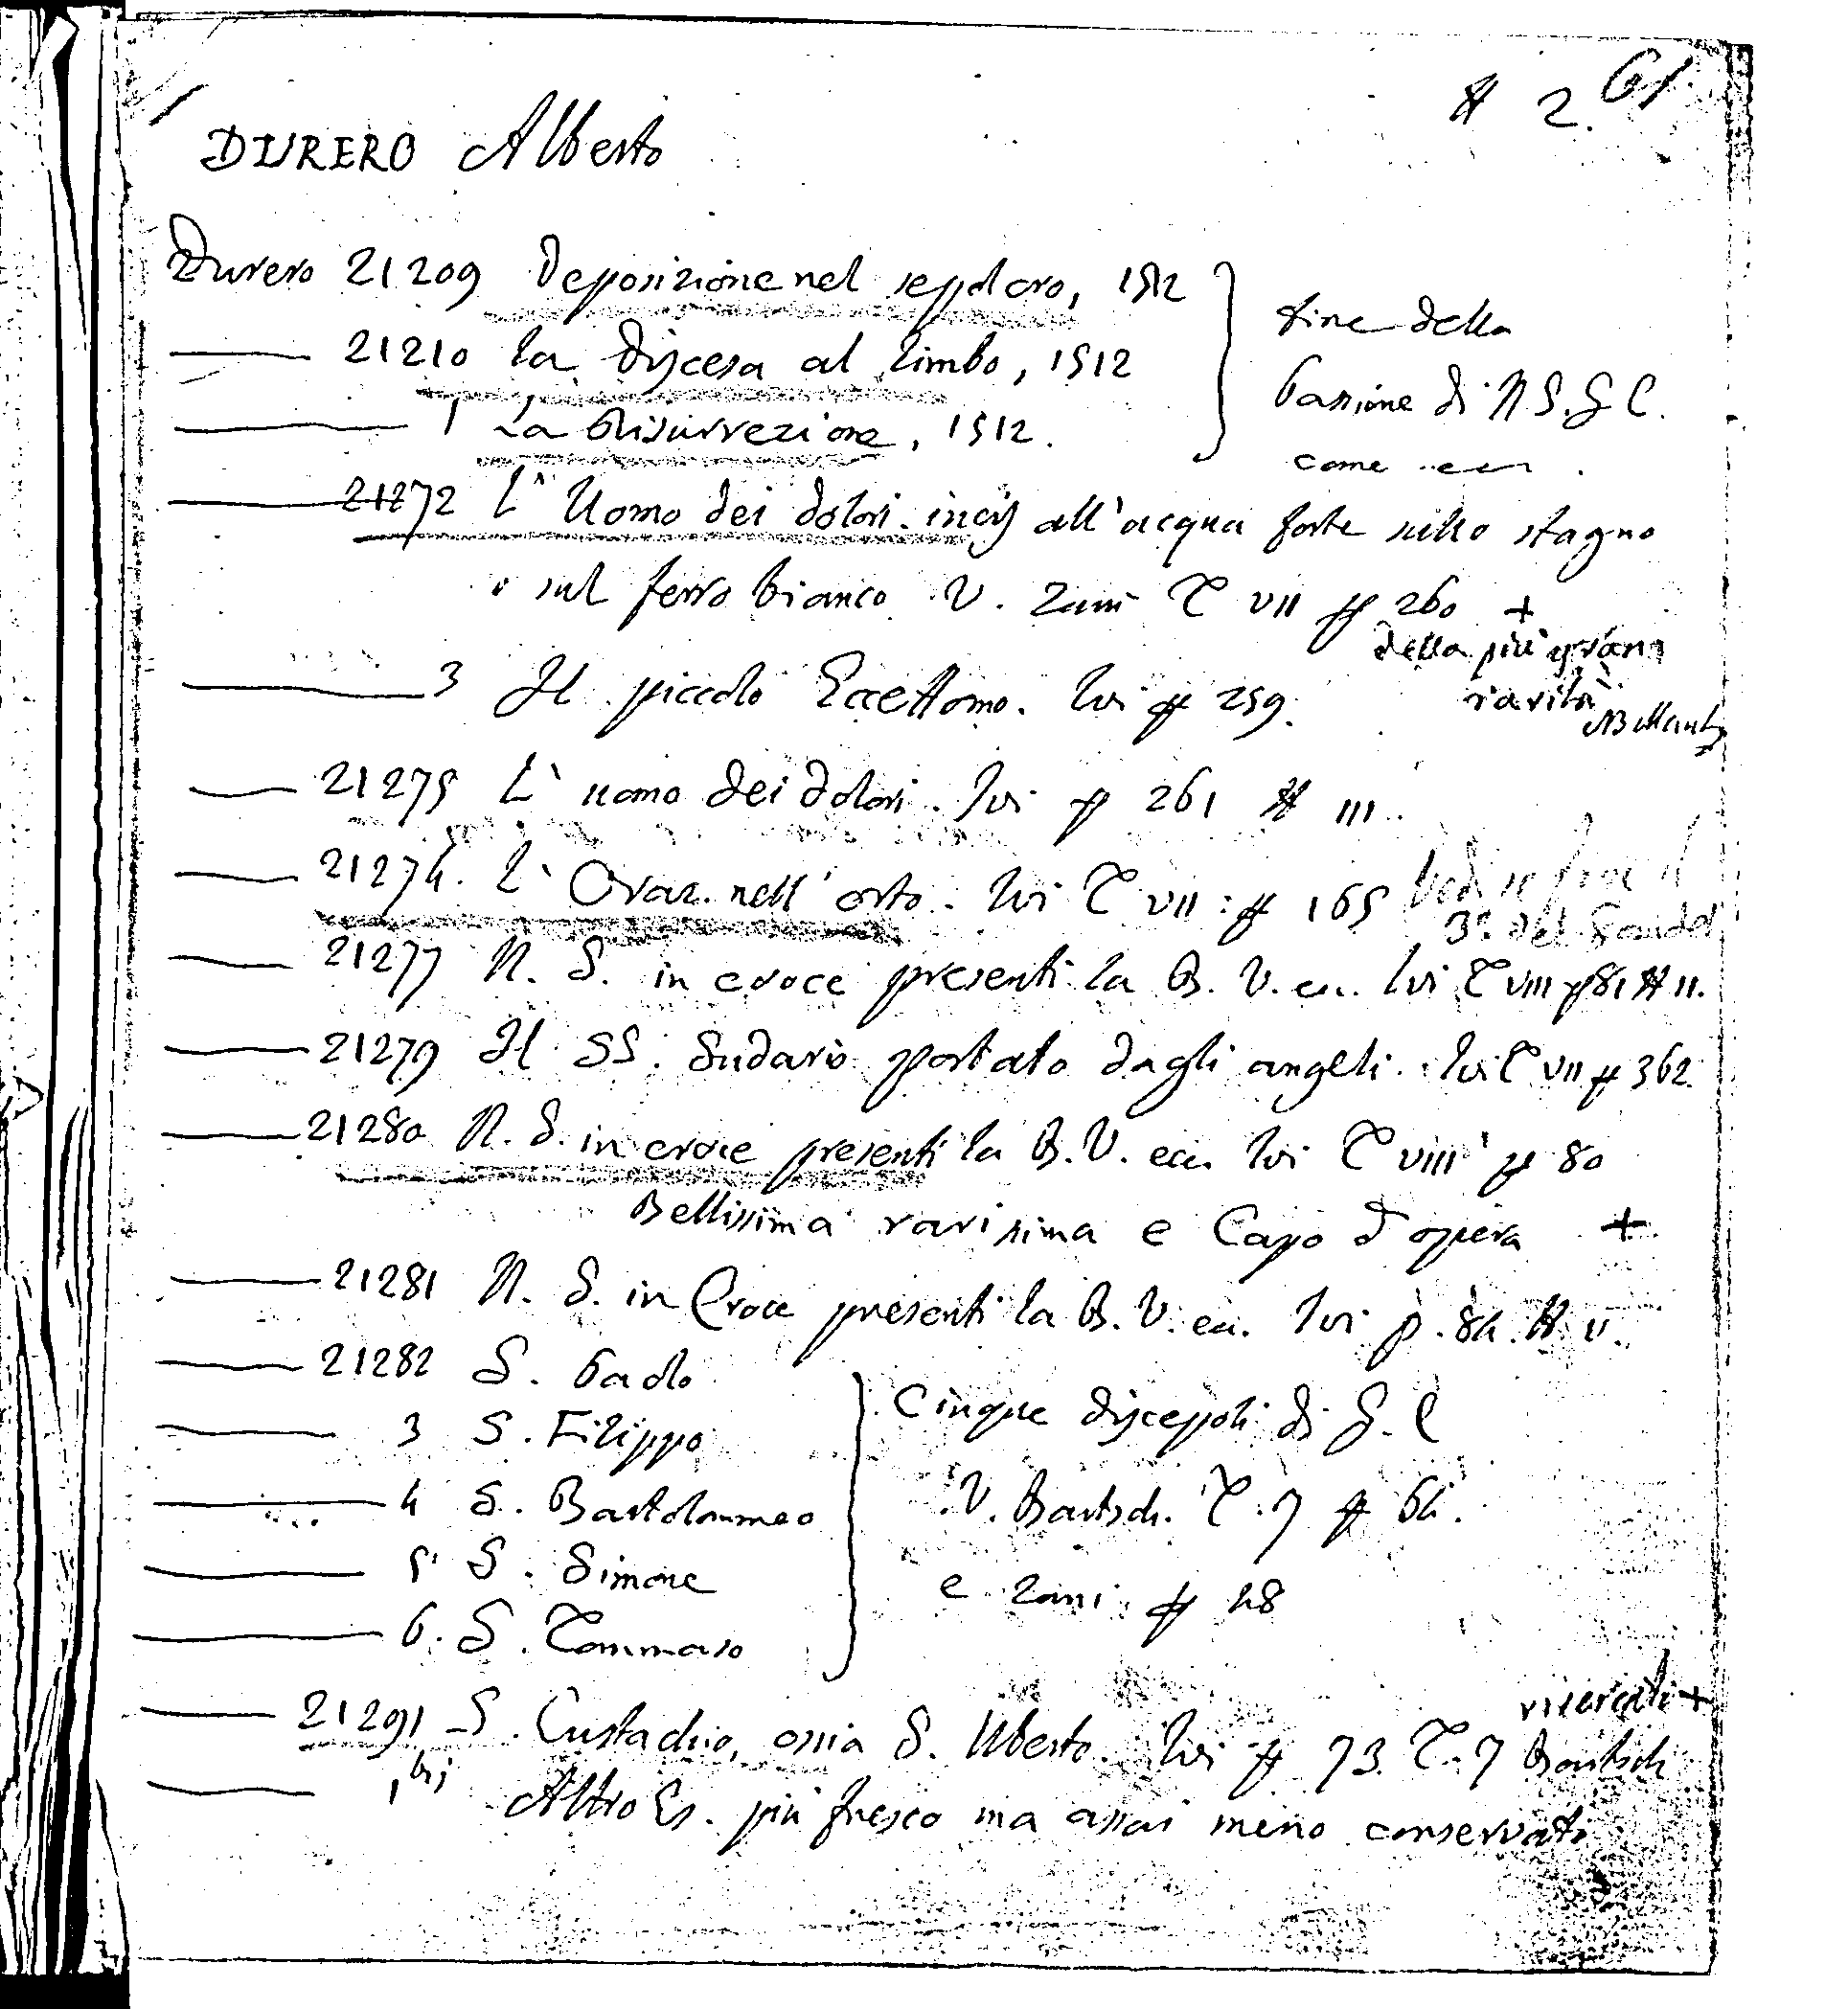 N 2. 61
DURERO Alberto
Durero 21209 Deposizione nel sepolcro, 1512
21210 la discesa al limbo, 1512
1 La Risurrezione, 1512.
fine della
Passione di N.S.G.C.
come
21272 L'Uomo dei dolori. incis all'acqua forte sullo stagno
o sul ferro bianco V. Zani T VII p 260 +
della più gran
rarità
3 Il piccolo EcceHomo. Ivi p 259.
21275 L'uomo dei dolori. Ivi p 261 N III.
21274. L'Oraz. nell'orto. Ivi T VII. p 165
3° del
21277 N. S. in croce presenti la B. V. ecc. Ivi T VIII p 81 N II.
21279 Il SS. Sudario portato dagli angeli. Ivi T VII p 362.
21280 N. S. in croce presenti la B. V. ecc. Ivi T VIII p 80
Bellissima rarissima e Capo d'opera +
21281 N. S. in Croce presenti la B. V. ecc. Ivi p. 84. N. V.
21282 S. Paolo
3 S. Filippo
4 S. Bartolommeo
5 S. Simone
6. S. Tommaso
Cinque discepoli di G. C
V. Bartsch. T. 7 p 64.
e Zani. p 48
21291 S. Eustachio, ossia S. Uberto. Ivi p 73. T. 7 Bartsch
ricercata +
1 bis Altro Es. più fresco ma assai meno conservato